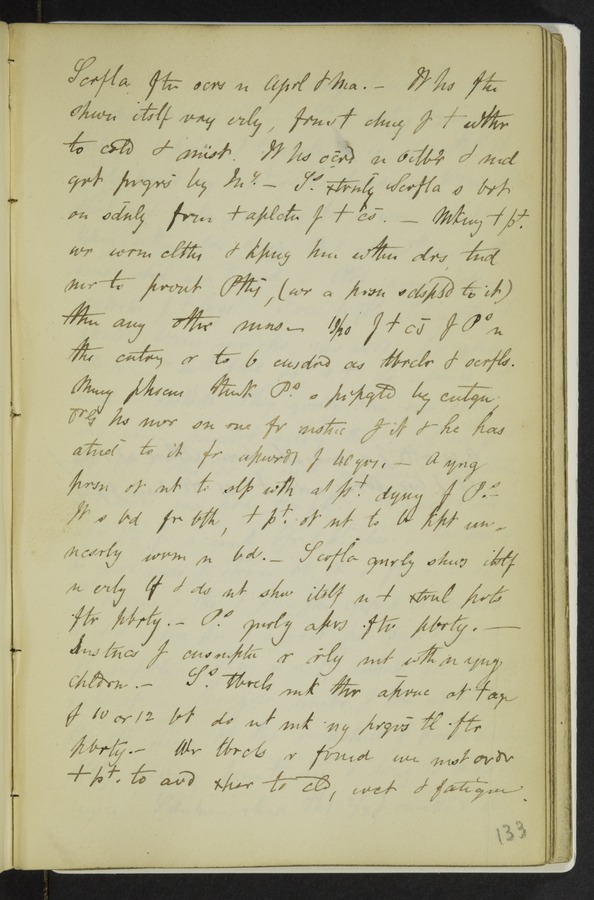 Scrfla ftn ocrs n Aprl & Ma. — It hs ftn
shwn itslf vry erly, frm t chng f t wthr
to cold & moist. It hs ocrd n Octbr & md
grt progrs by — So. xtrnly Scrfla s brt
on sdnly frm t aplctn f t cs. — Mkng t pt.
wr wrm clths & kpng hm wthn drs tnd
mr to prvnt Pths, (wr a prsn s dspsd to it)
thn any othr mns — 19/20 f t cs f Po n
ths cntry r to b cnsdrd as tbrclr & scrfls.
Mny phscns thnk Po. s prpgtd by cntgn.
hs nvr sn one fr mstnc f it & he has
atnd to it fr upwrds f 40 yrs. — A yng
prsn ot nt to slp wth at pt. dyng f Po. —
It s bd fr bth, & t pt. ot nt to b kpt un-
ncsrly wrm n bd. — Scrfla gnrly shws itslf
n erly lf & ds nt shw itslf n t xtrnl prts
ftr pbrty. — Po. gnrly aprs ftr pbrty. —
Instncs f cnsmptn r nly mt wth n yng
chldrn. — So. tbrcls mk thr aprnc at t age
f 10 or 12 bt do nt mk ny progrs tl ftr
pbrty. — Whr tbrcls r found we mst ordr
t pt. to avd xpsr to cld, wet & fatigue.
133